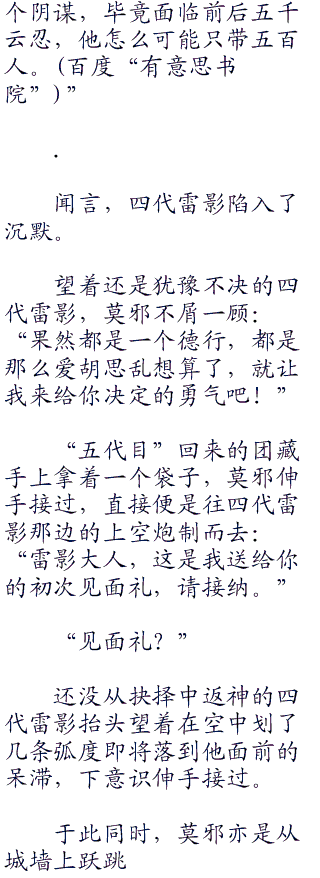 个阴谋，毕竟面临前后五千
云忍，他怎么可能只带五百
人。(百度“有意思书
院”)”
.
闻言，四代雷影陷入了
沉默。
望着还是犹豫不决的四
代雷影，莫邪不屑一顾：
“果然都是一个德行，都是
那么爱胡思乱想算了，就让
我来给你决定的勇气吧！”
“五代目”回来的团藏
手上拿着一个袋子，莫邪伸
手接过，直接便是往四代雷
影那边的上空炮制而去：
“雷影大人，这是我送给你
的初次见面礼，请接纳。”
“见面礼？”
还没从抉择中返神的四
代雷影抬头望着在空中划了
几条弧度即将落到他面前的
呆滞，下意识伸手接过。
于此同时，莫邪亦是从
城墙上跃跳